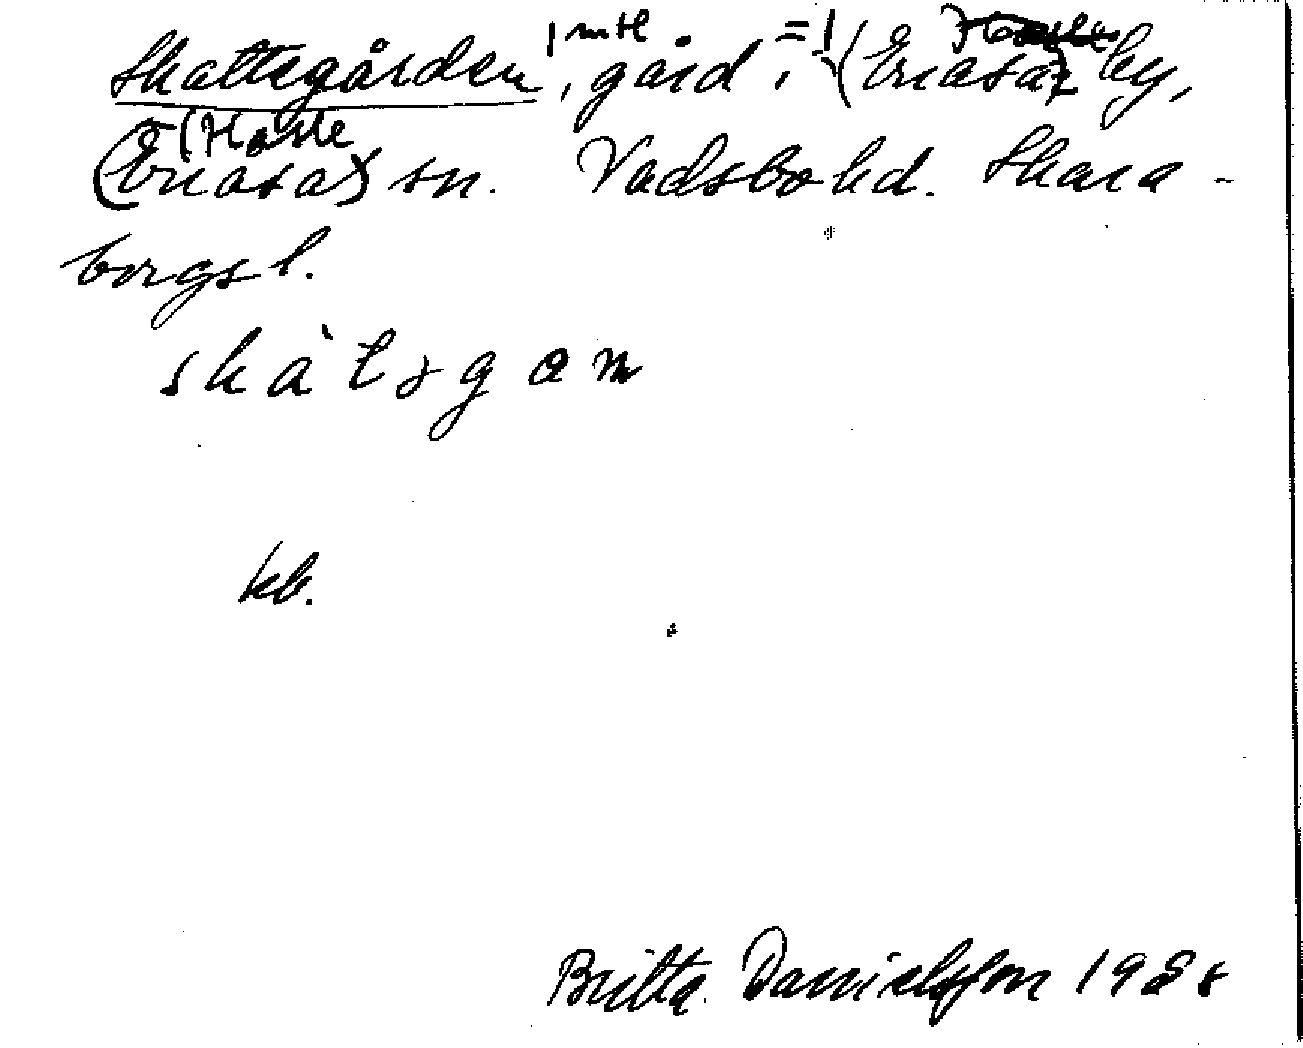 Skattegården, 1 mtl gård, i (Enåsa) by,
(Enåsa) Hassle sn. Vadsbo hd. Skara-
borgs l.
skàtəgɑn
kb.
Britta Danielsson 1928